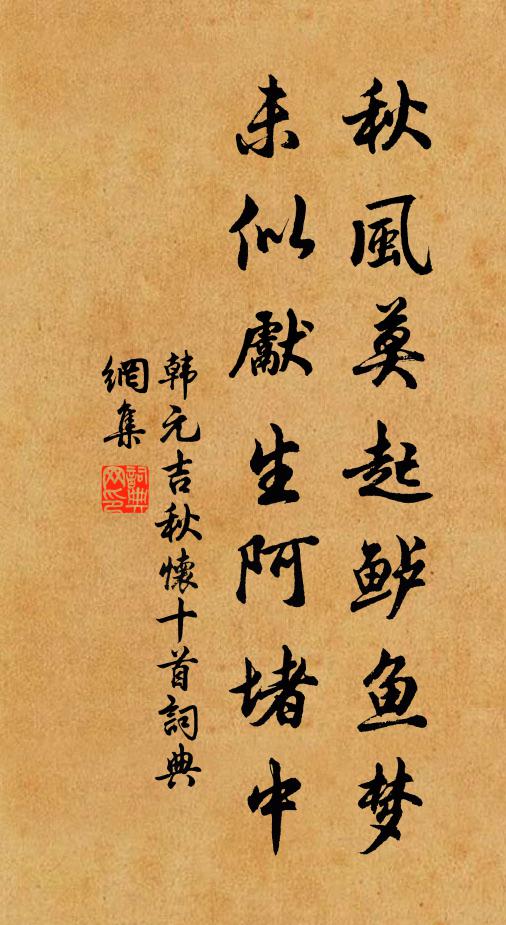 秋風莫起鲈鱼梦
未似獻生阿堵中
韩元吉秋懷十首詞典
網集
詞典
网印